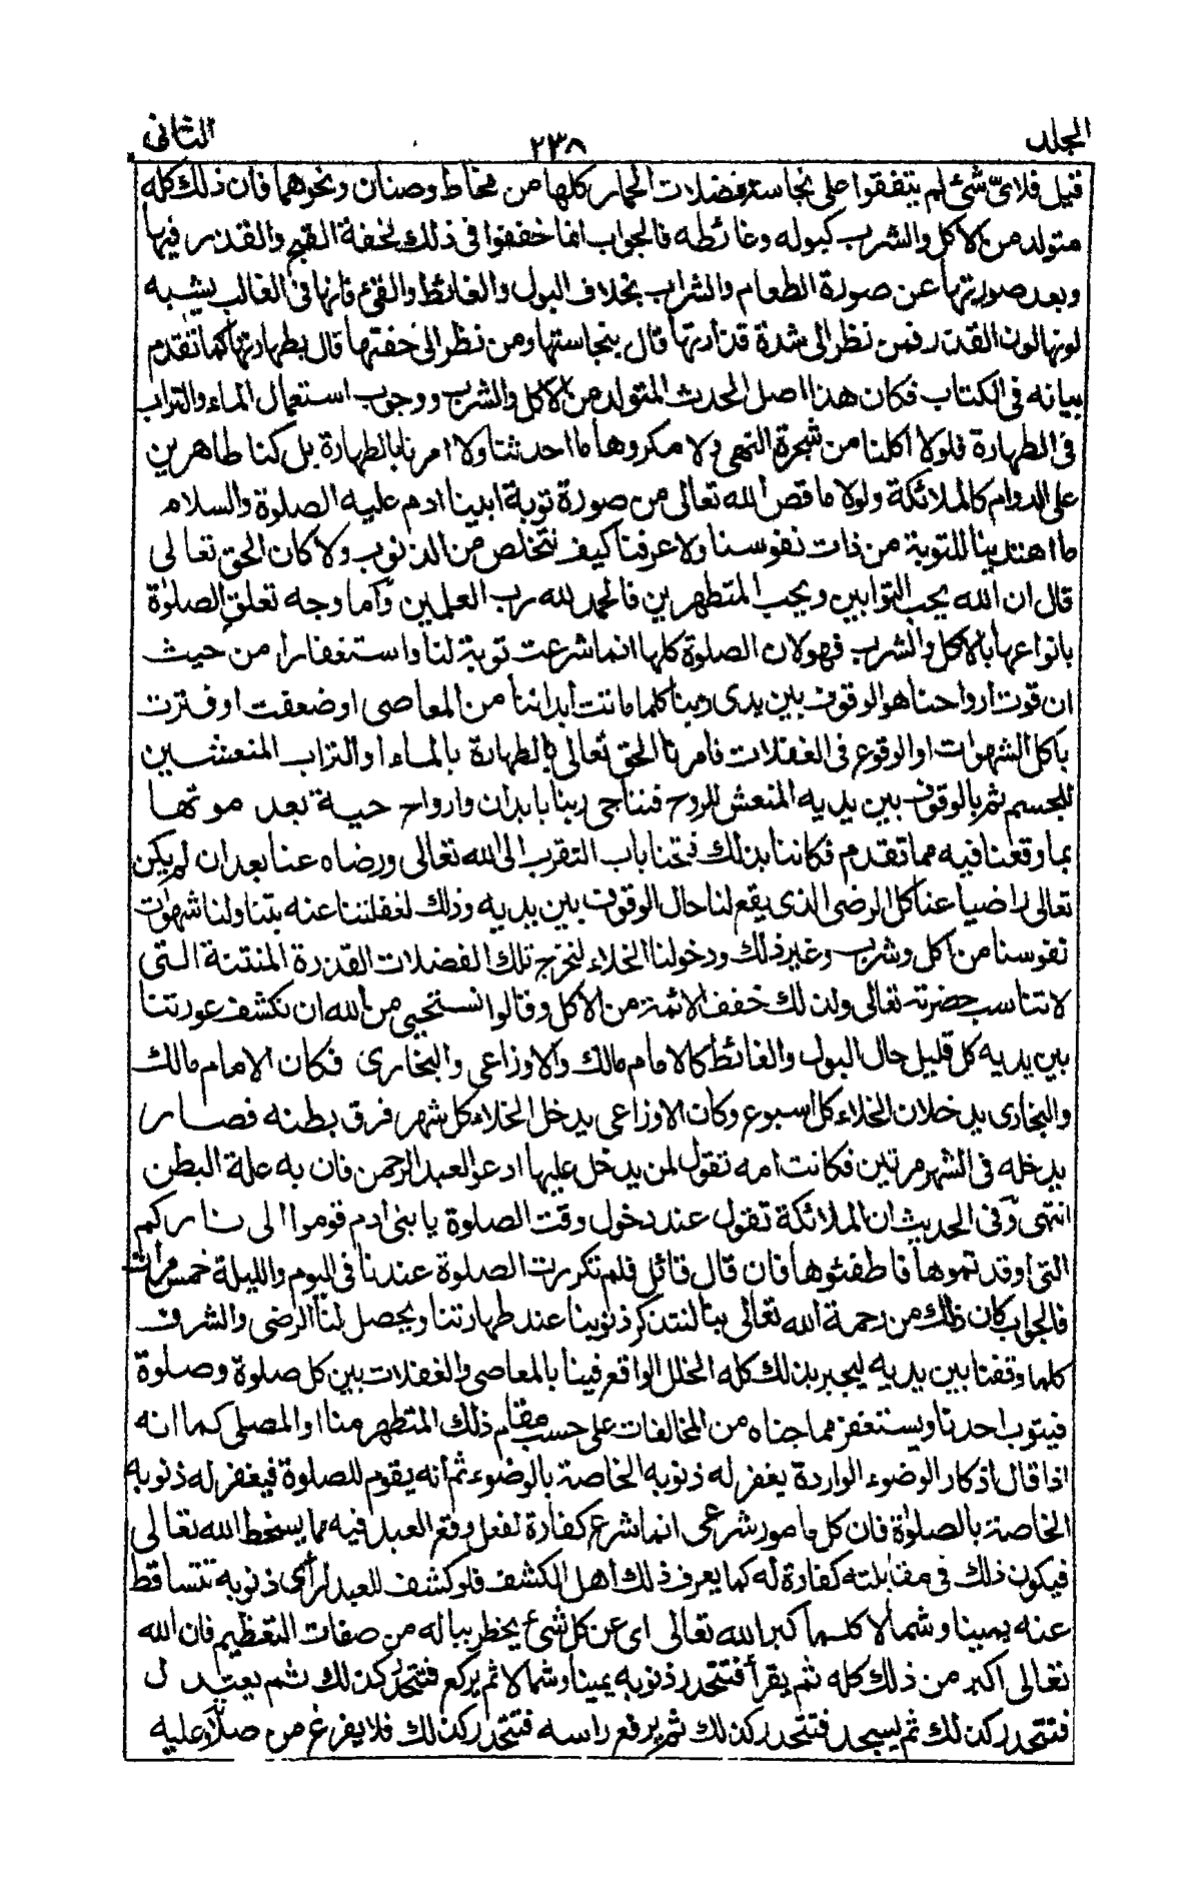 المجلد ٢٣٨ الثانى
قيل فلاىّ شئ لم يتفقوا على نجاسة فضلات الحمار كلها من مخاط وصنان ونحوهما فان ذلك كله
متولد من الاكل والشرب كبوله وغائطه فالجواب انما خففوا فى ذلك لخفة القبح والقذر فيها
وبعد صورتها عن صورة الطعام والشراب بخلاف البول والغائط والقئ فانها فى الغالب يشبه
لونها لون القذر فمن نظر الى شدة قذارتها قال بنجاستها ومن نظر الى خفتها قال بطهارتها كما تقدم
بيانه فى الكتاب فكان هذا اصل الحدث المتولد من الاكل والشرب ووجوب استعمال الماء والتراب
فى الطهارة فلولا اكلنا من شجرة النهى ولا مكروها ما احدثنا ولا امرنا بالطهارة بل كنا طاهرين
على الدوام كالملائكة ولولا ما قص الله تعالى من صورة توبة ابينا ادم عليه الصلوة والسلام
ما اهتدينا للتوبة من ذات نفوسنا ولا عرفنا كيف نتخلص من الذنوب ولا كان الحق تعالى
قال ان الله يحب التوابين ويحب المتطهرين فالحمد لله رب العلمين وأما وجه تعلق الصلوة
بانواعها بالاكل والشرب فهو لان الصلوة كلها انما شرعت توبة لنا واستغفارا من حيث
ان قوت ارواحنا هو الوقوف بين يدى ربنا كلما ماتت أبداننا من المعاصى او ضعفت او فترت
باكل الشهوات او الوقوع فى الغفلات فامرنا الحق تعالى بالطهارة بالماء او التراب المنعشين
للجسم ثم بالوقوف بين يديه المنعش للروح فنناجى ربنا بابدان وارواح حية بعد موتها
بما وقعنا فيه مما تقدم فكاننا بذلك فتحنا باب التقرب الى الله تعالى ورضاه عنا بعد ان لم يكن
تعالى راضيا عنا كل الرضى الذى يقع لنا حال الوقوف بين يديه وذلك لغفلتنا عنه بتناولنا شهوات
نفوسنا من اكل وشرب وغير ذلك ودخولنا الخلاء لنخرج تلك الفضلات القذرة المنتنة التى
لا تناسب حضرته تعالى ولذلك خفف الائمة من الاكل وقالوا نستحيى من الله ان نكشف عورتنا
بين يديه كل قليل حال البول والغائط كالامام مالك والاوزاعى والبخارى فكان الامام مالك
والبخارى يدخلان الخلاء كل اسبوع وكان الاوزاعى يدخل الخلاء كل شهر فرق بطنه فصار
يدخله فى الشهر مرتين فكانت امه تقول لمن يدخل عليها ادعوا لعبد الرحمن فان به علة البطن
انتهى وفى الحديث ان الملائكة تقول عند دخول وقت الصلوة يا بنى ادم قوموا الى ناركم
التى اوقدتموها فاطفئوها فان قال قائل فلم تكررت الصلوة عندنا فى اليوم والليلة خمس مرات
فالجواب كان ذلك من رحمة الله تعالى بنا لنتذكر ذنوبنا عند طهارتنا ويحصل لنا الرضى والشرف
كلما وقفنا بين يديه ليجبر بذلك كله الخلل الواقع فينا بالمعاصى والغفلات بين كل صلوة وصلوة
فيتوب احدنا ويستغفر مما جناه من المخالفات على حسب مقام ذلك المتطهر منا او المصلى كما انه
اذا قال اذكار الوضوء الواردة يغفر له ذنوبه الخاصة بالوضوء ثم انه يقوم للصلوة فيغفر له ذنوبه
الخاصة بالصلوٰة فان كل مامور شرعى انما شرع كفارة لفعل وقع العبد فيه مما يسخط الله تعالى
فيكون ذلك فى مقابلته كفارة له كما يعرف ذلك أهل الكشف فلو كشف للعبد لرأى ذنوبه تتساقط
عنه يمينا وشمالا كلما كبر الله تعالى اى عن كل شئ يخطر بباله من صفات التعظيم فان الله
تعالى اكبر من ذلك كله ثم يقرأ فتتحدر ذنوبه يمينا وشمالا ثم يركع فتتحدر كذلك ثم يعتدل
فتتحدر كذلك ثم يسجد فتتحدر كذلك ثم يرفع راسه فتتحدر كذلك فلا يفرغ من صلاته وعليه